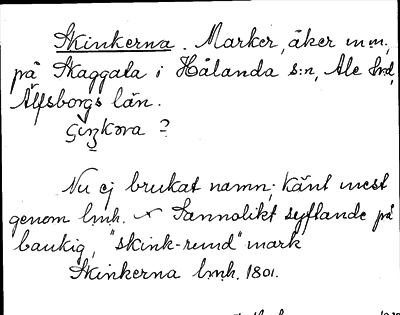 Skinkerna. Marker, åker m.m.,
på Skaggata i Hålanda s:n, Ale hrd,
Älfsborgs län.
Nu ej brukat namn; känt mest
genom lmh. Sannolikt syftande på
baukig, "skink-rund" mark
Skinkerna lmh. 1801.